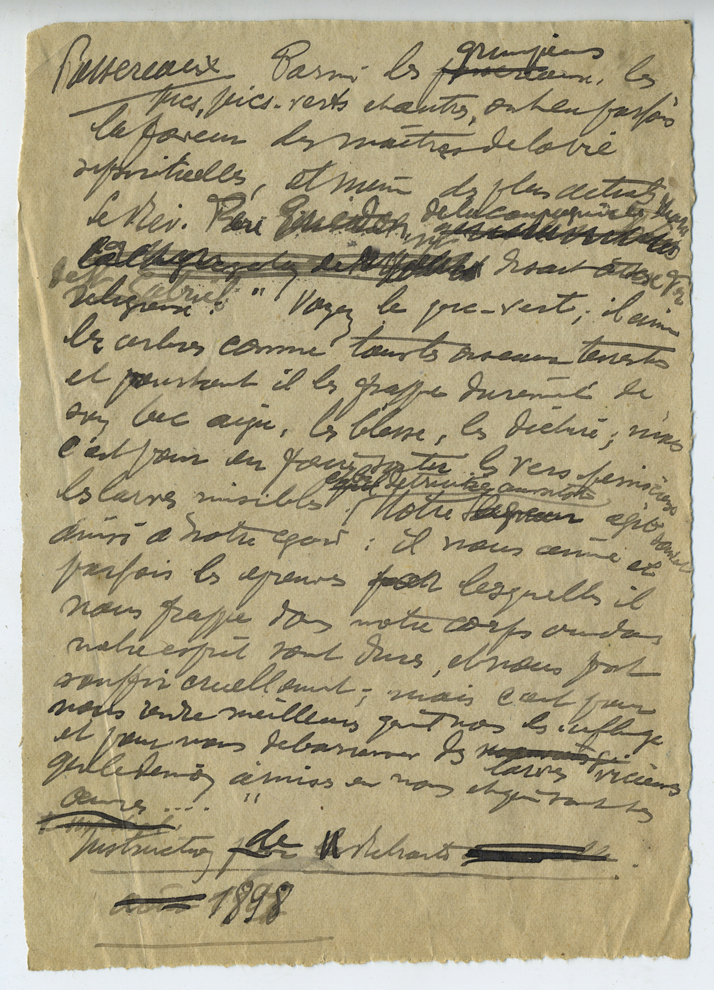 Passereaux Parmi les grimpeurs, les
pics, pics-verts et autres, ont eu parfois
la faveur des maîtres de la vie
spirituelle, et même des plus
le Rév. Père de la compagnie de
disait à des
religieux : " Voyez le pic-vert ; il aime
les arbres comme tous les oiseaux
et pourtant il les frappe durement de
son bec aigu, les blesse, les déchire ; mais
c'est pour en faire sortir les vers pernicieux
les larves nuisibles. Notre Seigneur agit souvent
ainsi à notre égard : il nous aime et
parfois les épreuves par lesquelles il
nous frappe dans notre corps ou dans
notre esprit sont dures, et nous font
souffrir cruellement ; mais c'est pour
nous rendre meilleurs qu'il nous les inflige
et pour nous débarrasser des larves vicieuses
que le démon a mises en nous et qui sont ses
œuvres .... "
Instruction de Retraite
août 1898